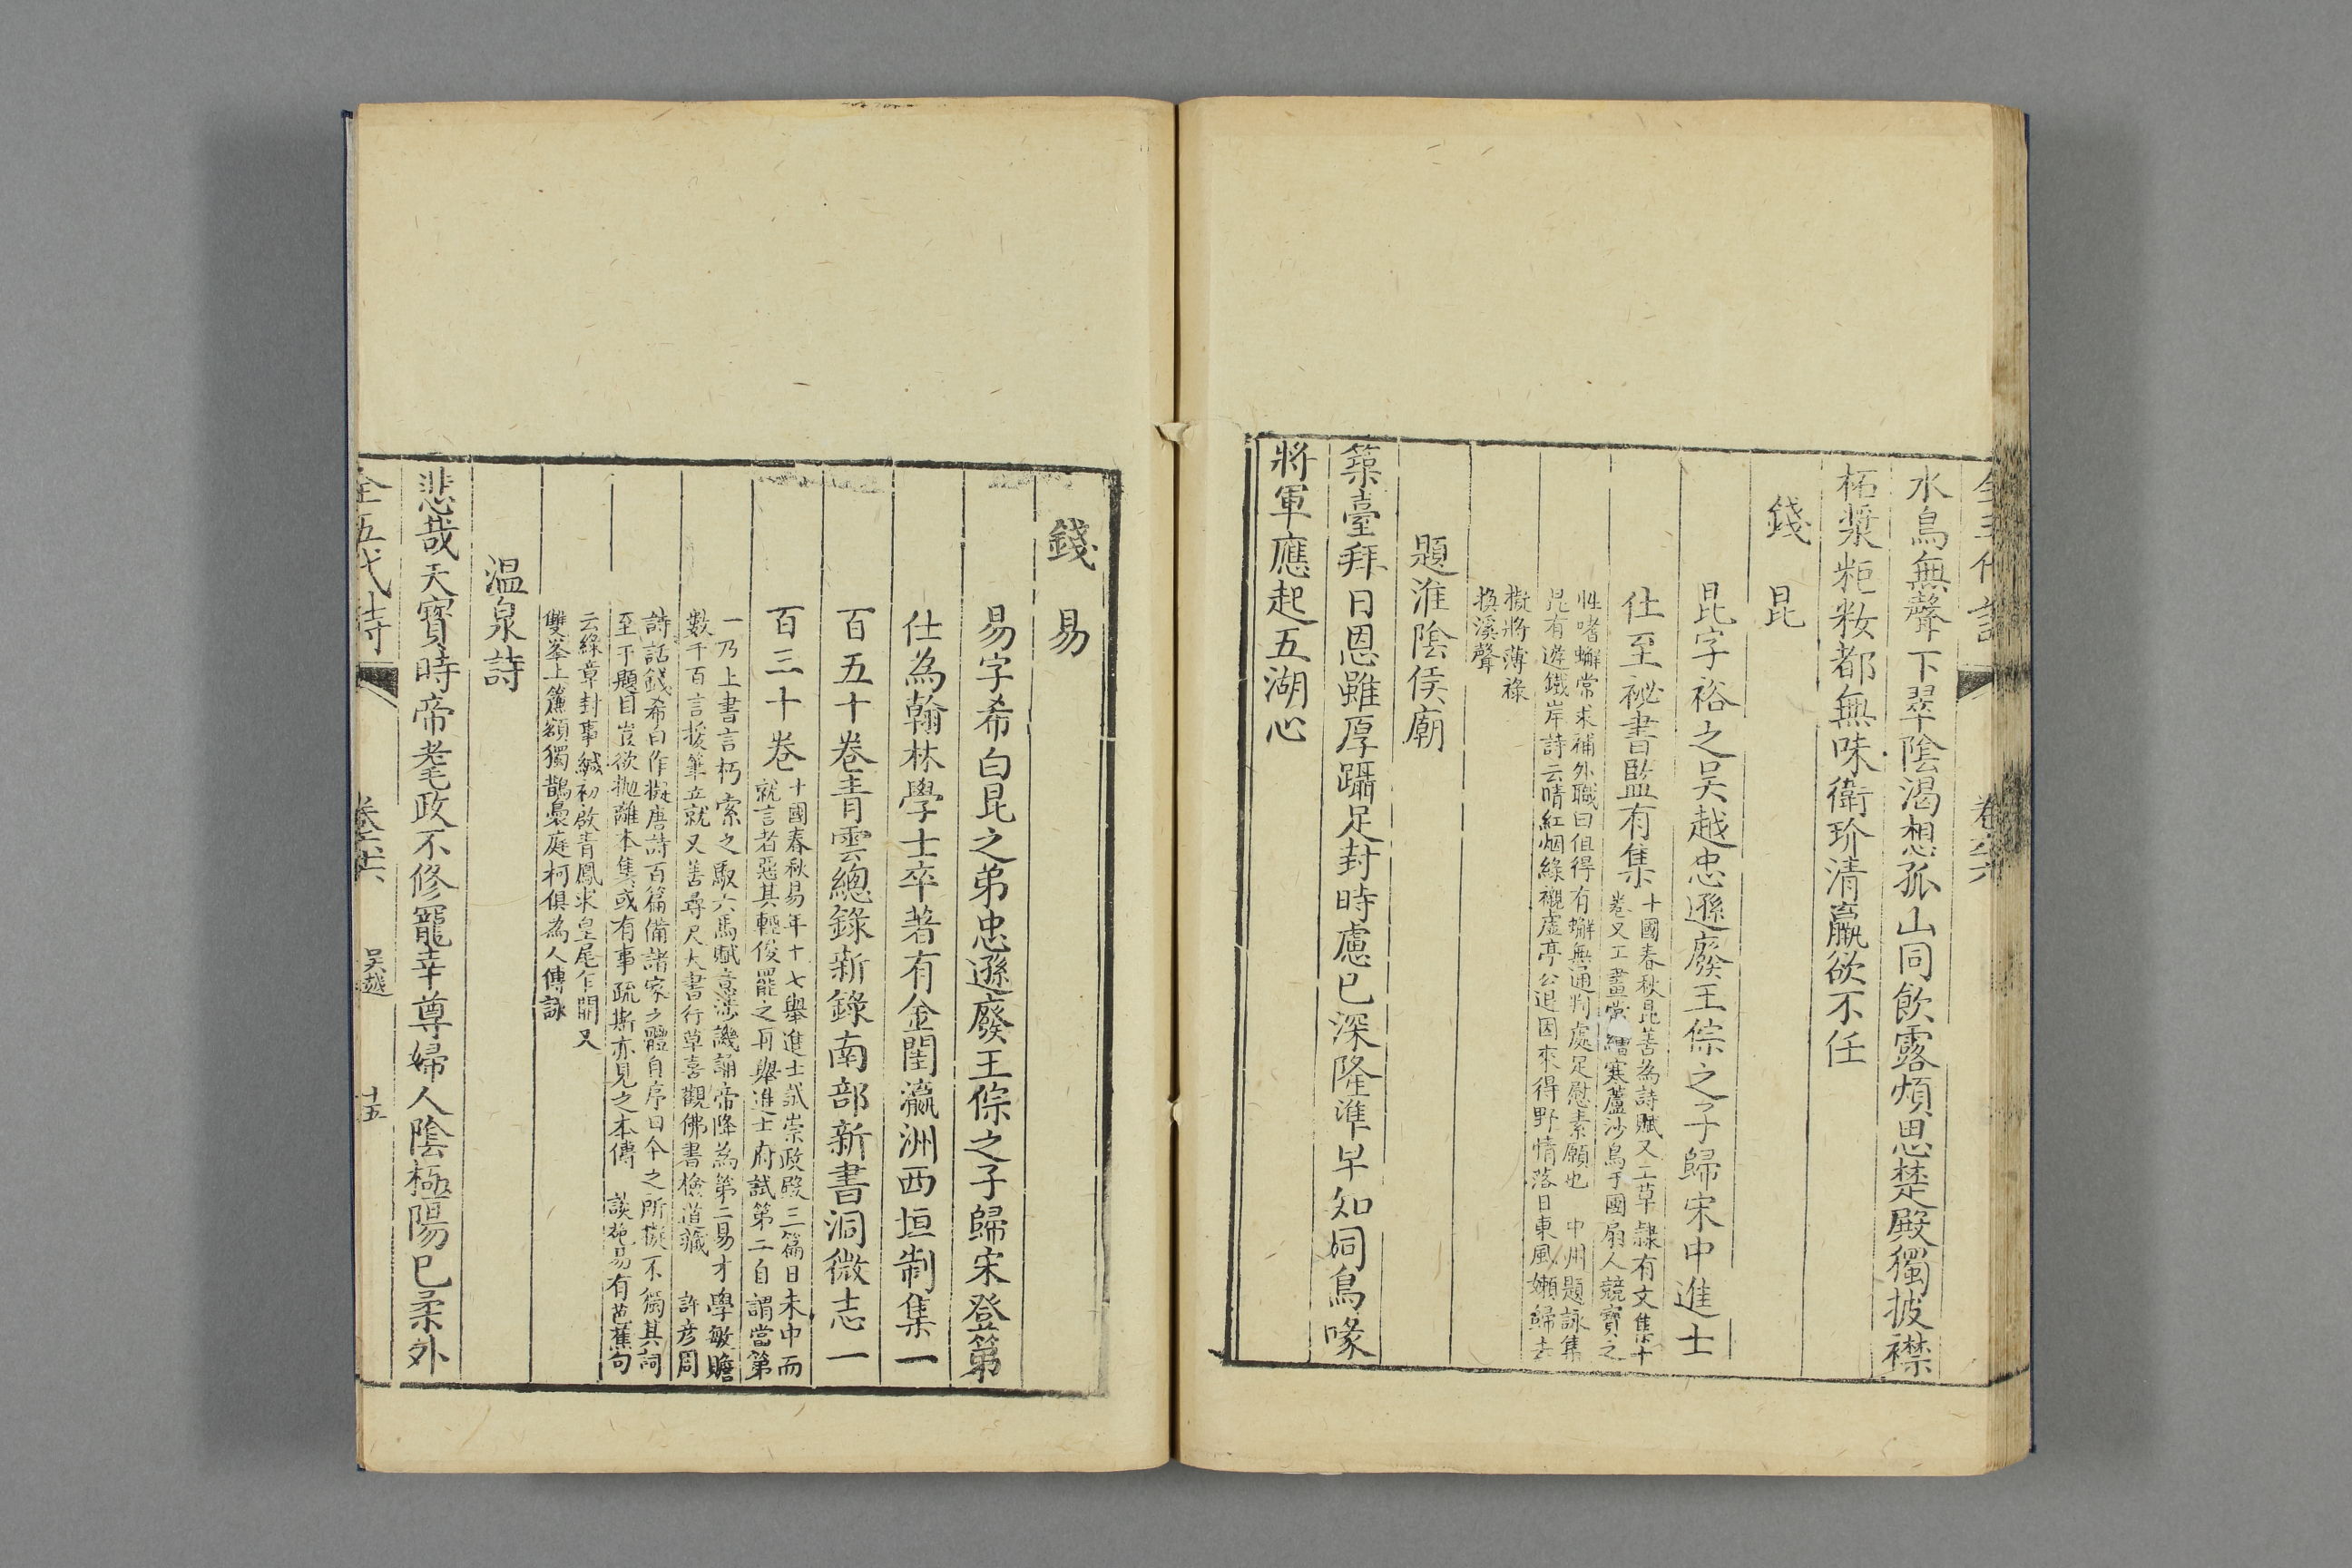 水鳥無聲下翠陰渴想孤山同飲露煩思楚殿獨披襟
柘漿粔籹都無味衛玠清羸欲不任
錢昆
昆字裕之吳越忠遜廢王倧之子歸宋中進士
仕至祕書監有集
十國春秋昆善為詩賦又工草隸有文集十
卷又工畫常繪寒蘆沙鳥于國扇人競寶之
性嗜蠏常求補外職曰但得有蠏無通判處足慰素願也 中州題詠集
昆有遊鐵岸詩云晴紅烟綠襯虛亭公退因來得野情落日東風嬾歸去
擬將薄祿
換溪聲
題淮陰侯廟
築臺拜日恩雖厚躡足封時慮已深隆準早知同鳥喙
將軍應起五湖心
錢易
易字希白昆之弟忠遜廢王倧之子歸宋登第
仕為翰林學士卒著有金閨瀛洲西垣制集一
百五十卷青雲總錄新錄南部新書洞微志一
百三十卷
十國春秋易年十七舉進士試崇政殿三篇日未中而
就言者惡其輕俊罷之再舉進士府試第二自謂當第
一乃上書言朽索之馭六馬賦意涉譏誚帝降為第二易才學敏贍
數千百言援筆立就又善尋尺大書行草喜觀佛書檢道藏 許彦周
詩話錢希白作擬唐詩百篇備諸家之體自序曰今之所擬不獨其詞
至于題目豈欲拋離本集或有事疏斯亦見之本傳 談苑易有芭蕉句
云綠章封事緘初啟青鳳求皇尾乍開又
雙峯上簾額獨鵲裊庭柯俱為人傳詠
温泉詩
悲哉天寶時帝耄政不修寵幸尊婦人陰極陽已柔外
全五代詩 吳越 十五